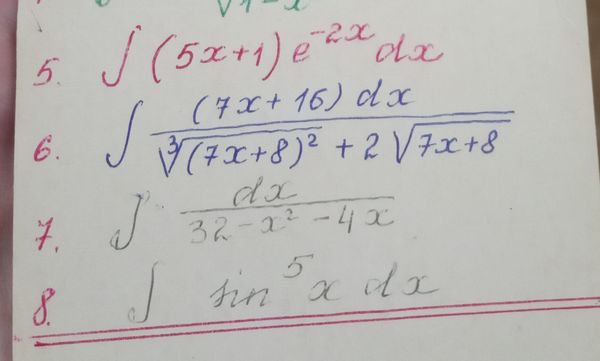 √1-x
5. ∫ (5x+1) e^{-2x} dx
6. ∫ (7x+16) dx / (∛(7x+8)² + 2√7x+8)
7. ∫ dx / (32-x²-4x)
8. ∫ sin⁵ x dx